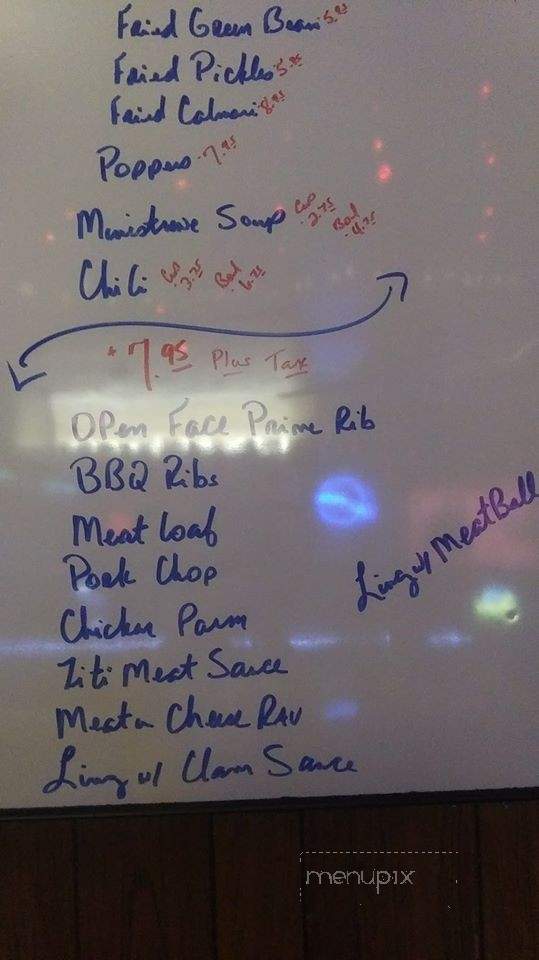 Fried Green Beans 5.95
Fried Pickles 5.95
Fried Calmari 8.95
Poppers 7.95
Ministrone Soup Cup 2.75 Bowl 4.75
Chili Cup 3.75 Bowl 6.75
7.95 Plus Tax
Open Face Prime Rib
BBQ Ribs
Meat Loaf
Pork Chop
Ling w/ MeatBall
Chicken Parm
Ziti Meat Sauce
Meat or Cheese RAV
Ling w/ Clam Sauce
menupix